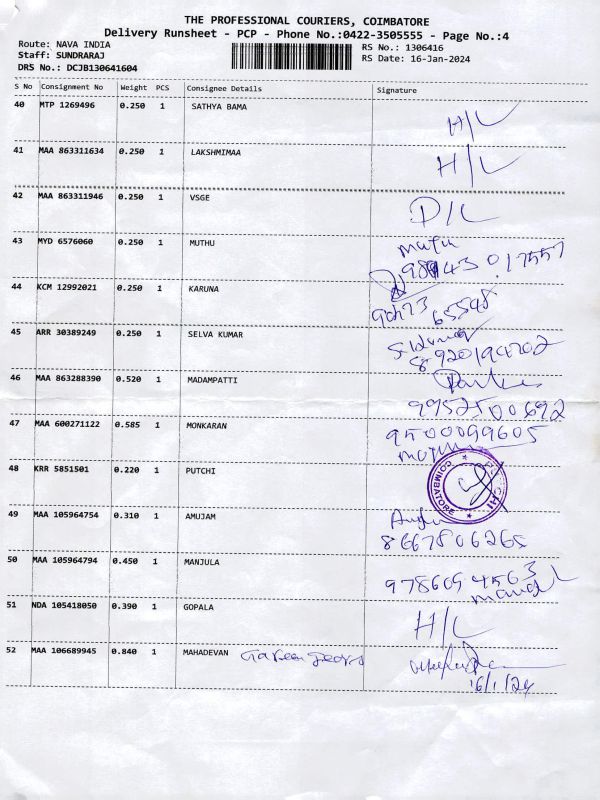 THE PROFESSIONAL COURIERS, COIMBATORE
Delivery Runsheet - PCP - Phone No.:0422-3505555 - Page No.:4
Route: NAVA INDIA
Staff: SUNDRARAJ
DRS No.: DCJB130641604
RS No.: 1306416
RS Date: 16-Jan-2024
S No Consignment No Weight PCS Consignee Details Signature
40 MTP 1269496 0.250 1 SATHYA BAMA H/L
41 MAA 863311634 0.250 1 LAKSHMIMAA H/L
42 MAA 863311946 0.250 1 VSGE D/L
43 MYD 6576060 0.250 1 MUTHU
44 KCM 12992021 0.250 1 KARUNA 65548
45 ARR 30389249 0.250 1 SELVA KUMAR 8920194702
46 MAA 863288390 0.520 1 MADAMPATTI 9952500692
47 MAA 600271122 0.585 1 MONKARAN 9500099605
48 KRR 5851501 0.220 1 PUTCHI COIMBATORE
49 MAA 105964754 0.310 1 AMUJAM 8667806265
50 MAA 105964794 0.450 1 MANJULA 978609 4563
51 NDA 105418050 0.390 1 GOPALA H/L
52 MAA 106689945 0.840 1 MAHADEVAN 16/1/24